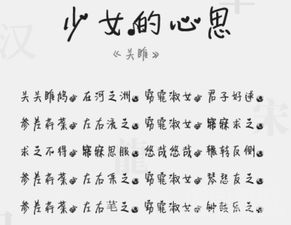 少女的心思
《关雎》
关关雎鸠 在河之洲 窈窕淑女 君子好逑
参差荇菜 左右流之 窈窕淑女 寤寐求之
求之不得 寤寐思服 悠哉悠哉 辗转反侧
参差荇菜 左右采之 窈窕淑女 琴瑟友之
参差荇菜 左右笔之 窈窕淑女 钟鼓乐之
汉
宋
龍